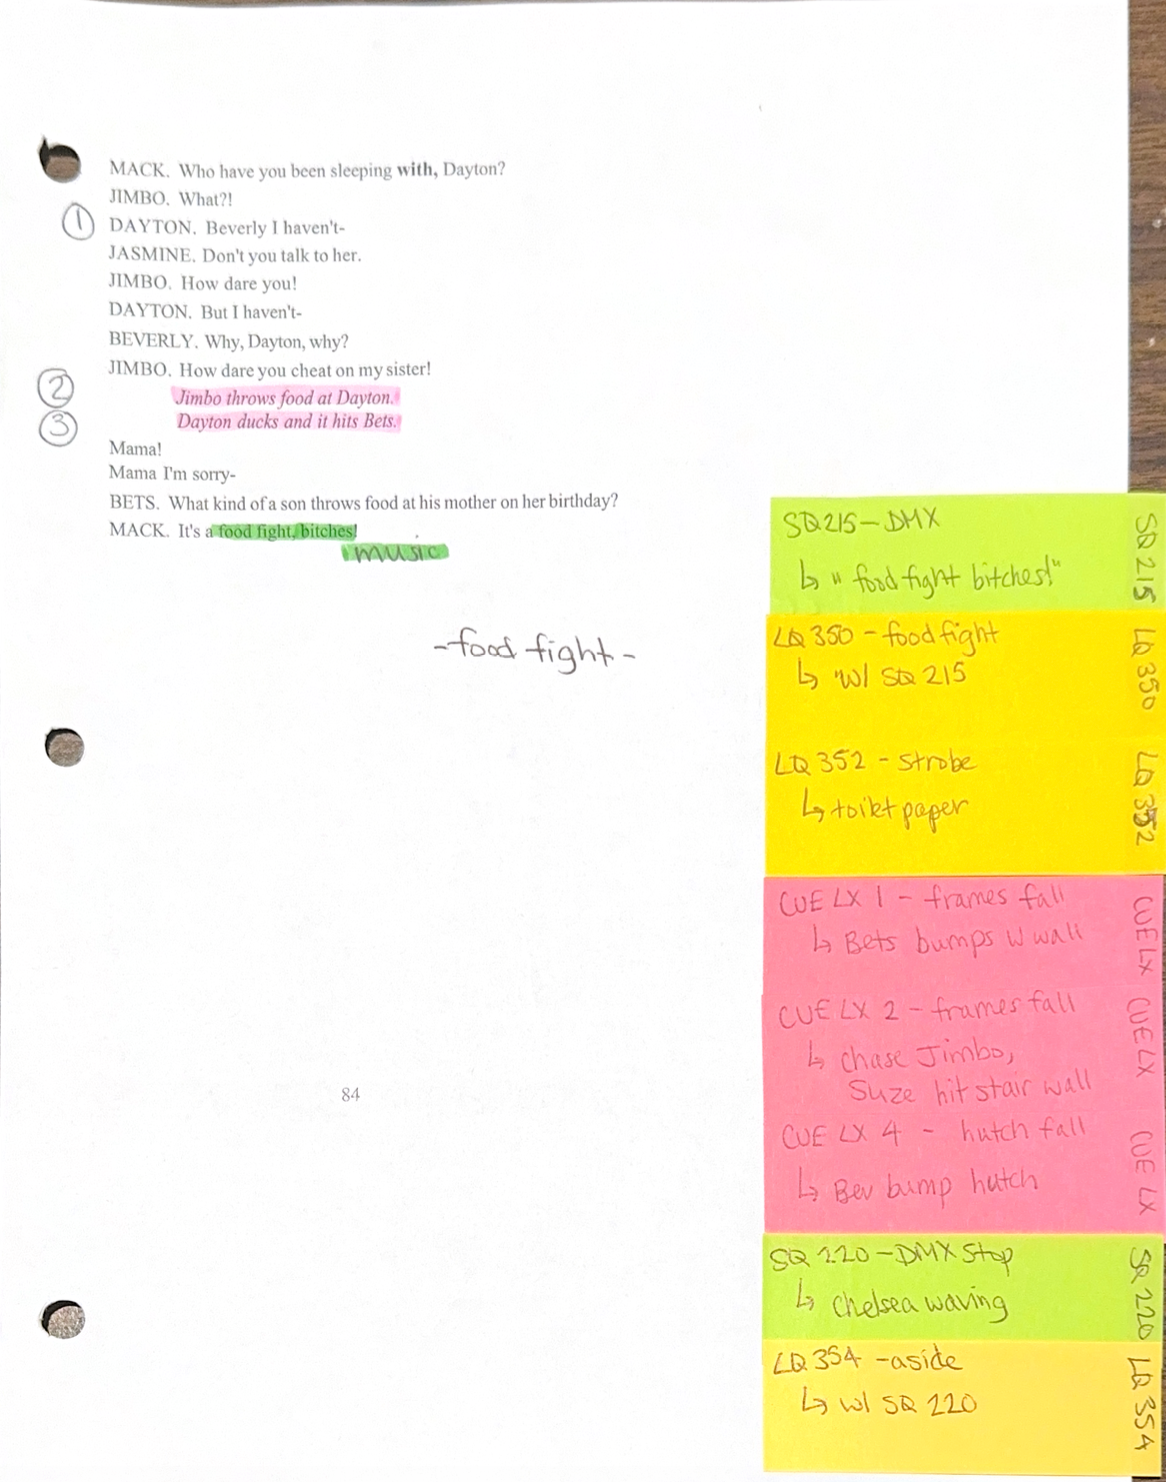 MACK. Who have you been sleeping with, Dayton?
JIMBO. What?!
① DAYTON. Beverly I haven't-
JASMINE. Don't you talk to her.
JIMBO. How dare you!
DAYTON. But I haven't-
BEVERLY. Why, Dayton, why?
JIMBO. How dare you cheat on my sister!
② Jimbo throws food at Dayton.
③ Dayton ducks and it hits Bets.
Mama!
Mama I'm sorry-
BETS. What kind of a son throws food at his mother on her birthday?
MACK. It's a food fight, bitches!
music
-food fight-
84
SQ215-DMX
↳ "food fight bitches!"
SQ 215
LQ 350 - food fight
↳ w/ SQ 215
LQ 350
LQ 352 - strobe
↳ toilet paper
LQ 352
CUE LX 1 - frames fall
↳ Bets bumps W wall
CUE LX
CUE LX 2 - frames fall
↳ chase Jimbo,
Suze hit stair wall
CUE LX
CUE LX 4 - hutch fall
↳ Bev bump hutch
CUE LX
SQ 220-DMX Stop
↳ Chelsea waving
SQ 220
LQ 354 -aside
↳ w/ SQ 220
LQ 354